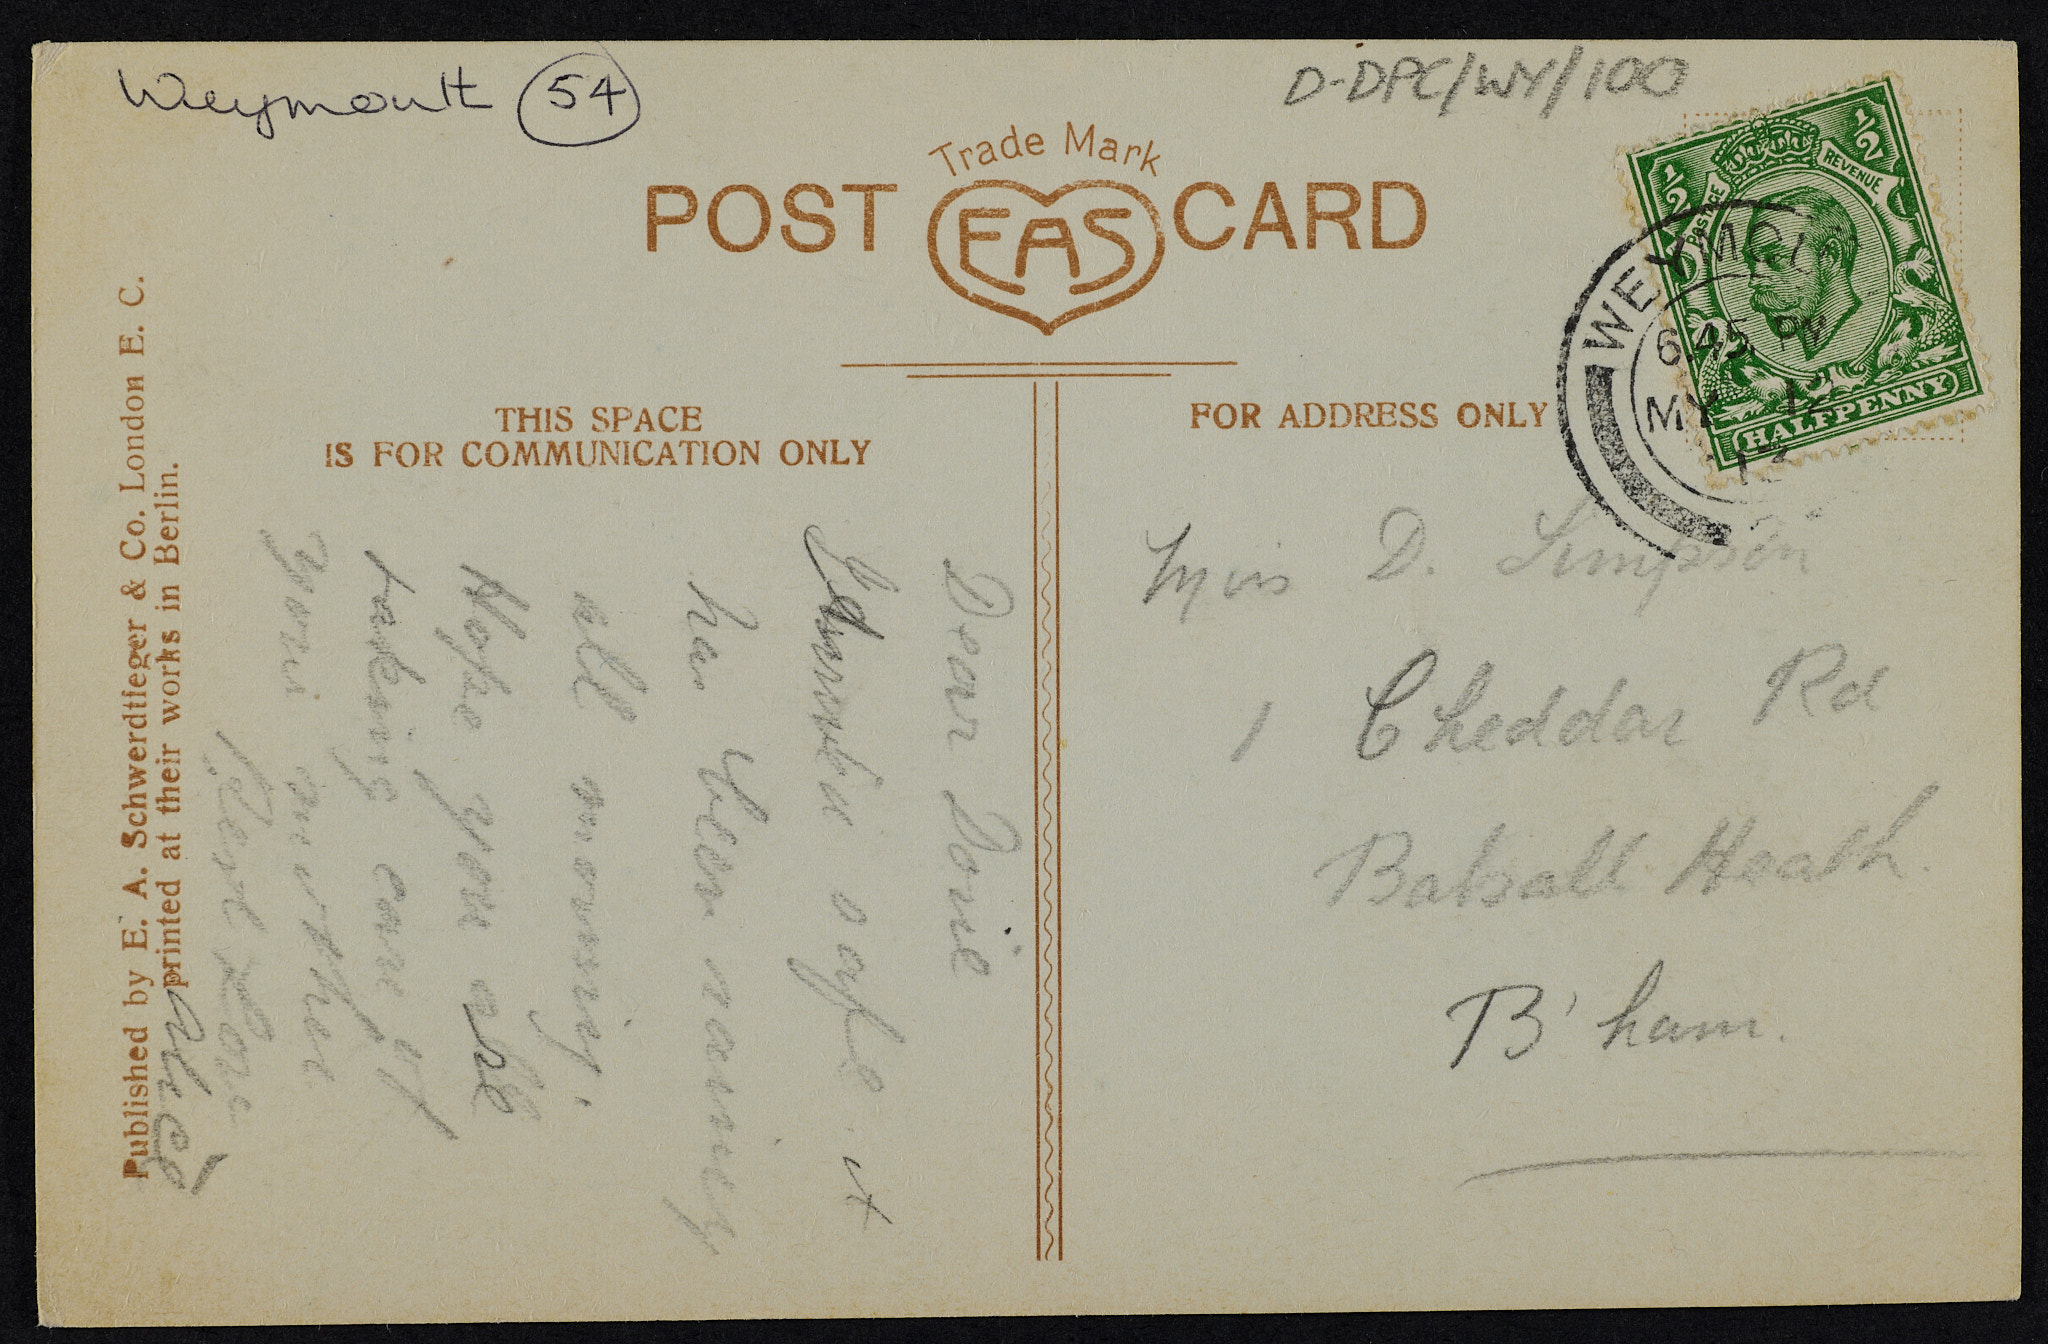 Weymouth 54
D-DPC/WY/100
Trade Mark
POST EAS CARD
½ ½
POSTAGE REVENUE
HALFPENNY
WEYMOU
6.45 PM
MY 12
THIS SPACE
IS FOR COMMUNICATION ONLY
FOR ADDRESS ONLY
Published by E. A. Schwerdtfeger & Co. London E. C.
printed at their works in Berlin.
Dear Dorie
safe &
has been raining
all morning.
Hope you are
taking care of
your mother
Best Love
Miss D. Simpson
1 Cheddar Rd
Balsall Heath
B'ham.